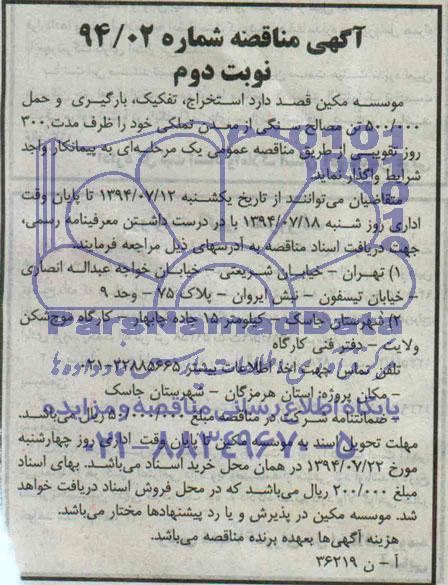 آگهی مناقصه شماره ۹۴/۰۲
نوبت دوم
موسسه مکین قصد دارد استخراج، تفکیک، بارگیری و حمل
۵۰۰/۰۰۰ تن مصالح سنگی از معدن تملکی خود را ظرف مدت ۳۰۰
روز تقویمی از طریق مناقصه عمومی یک مرحله‌ای به پیمانکار واجد
شرایط واگذار نماید.
متقاضیان می‌توانند از تاریخ یکشنبه ۱۳۹۴/۰۷/۱۲ تا پایان وقت
اداری روز شنبه ۱۳۹۴/۰۷/۱۸ با در درست داشتن معرفینامه رسمی،
جهت دریافت اسناد مناقصه به آدرسهای ذیل مراجعه فرمایند.
۱) تهران – خیابان شریعتی – خیابان خواجه عبداله انصاری
– خیابان تیسفون – نبش ایروان – پلاک ۷۵ – وحد ۹
۲) شهرستان جاسک – کیلومتر ۱۵ جاده چابهار – کارگاه موج‌شکن
ولایت – دفتر فنی کارگاه
تلفن تماس جهت اخذ اطلاعات بیشتر ۲۲۸۸۵۶۶۵-۰۲۱
– مکان پروژه: استان هرمزگان – شهرستان جاسک
– ضمانتنامه شرکت در مناقصه مبلغ ریال می‌باشد.
مهلت تحویل اسند به موسسه مکین تا پایان وقت اداری روز چهارشنبه
مورخ ۱۳۹۴/۰۷/۲۲ در همان محل خرید اسناد می‌باشد. بهای اسناد
مبلغ ۲۰۰/۰۰۰ ریال می‌باشد که در محل فروش اسناد دریافت خواهد
شد. موسسه مکین در پذیرش و یا رد پیشنهادها مختار می‌باشد.
هزینه آگهی‌ها بعهده برنده مناقصه می‌باشد.
آ – ن ۳۶۲۱۹
ParsNamadData
پایگاه اطلاع رسانی مناقصه و مزایده
۰۲۱-۸۸۳۴۹۶۷۰-۵